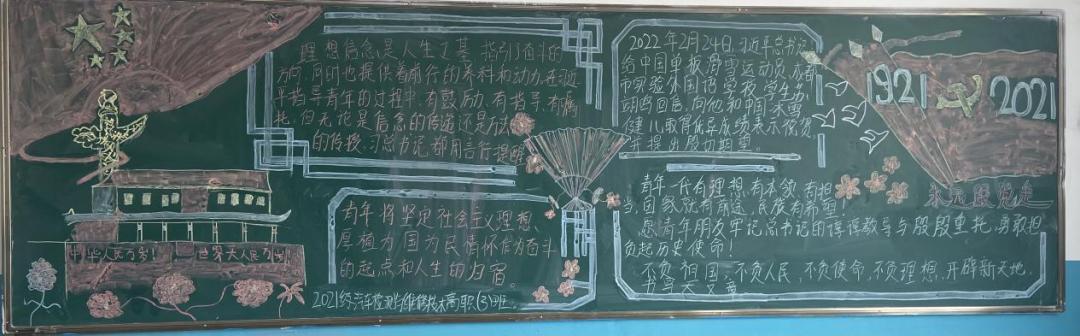 理想信念是人生之基,指引奋斗的
方向,同时也提供着前行的养料和动力,在习近
平指导青年的过程中,有鼓励、有指导、有嘱
托,但无论是信念的传递还是方法
的传授,习总书记都用言行提醒
青年将坚定社会主义理想、
厚植为国为民情怀作为奋斗
的起点和人生的归宿。
2021级汽车检测与维修技术高职(3)班.
中华人民万岁!
世界大人民万岁!
2022年2月24日,习近平总书记
给中国单板滑雪运动员、
市实验外国语学校学生苏
翊鸣回信,向他和中国冰雪
健儿取得优异成绩表示祝贺
并提出殷切期望。
1921 2021
永远跟党走
青年一代有理想、有本领、有担
当,国家就有前途,民族有希望!
愿青年朋友牢记总书记的谆谆教导与殷殷重托,勇敢担
负起历史使命!
不负祖国,不负人民,不负使命,不负理想,开辟新天地,
书写大文章